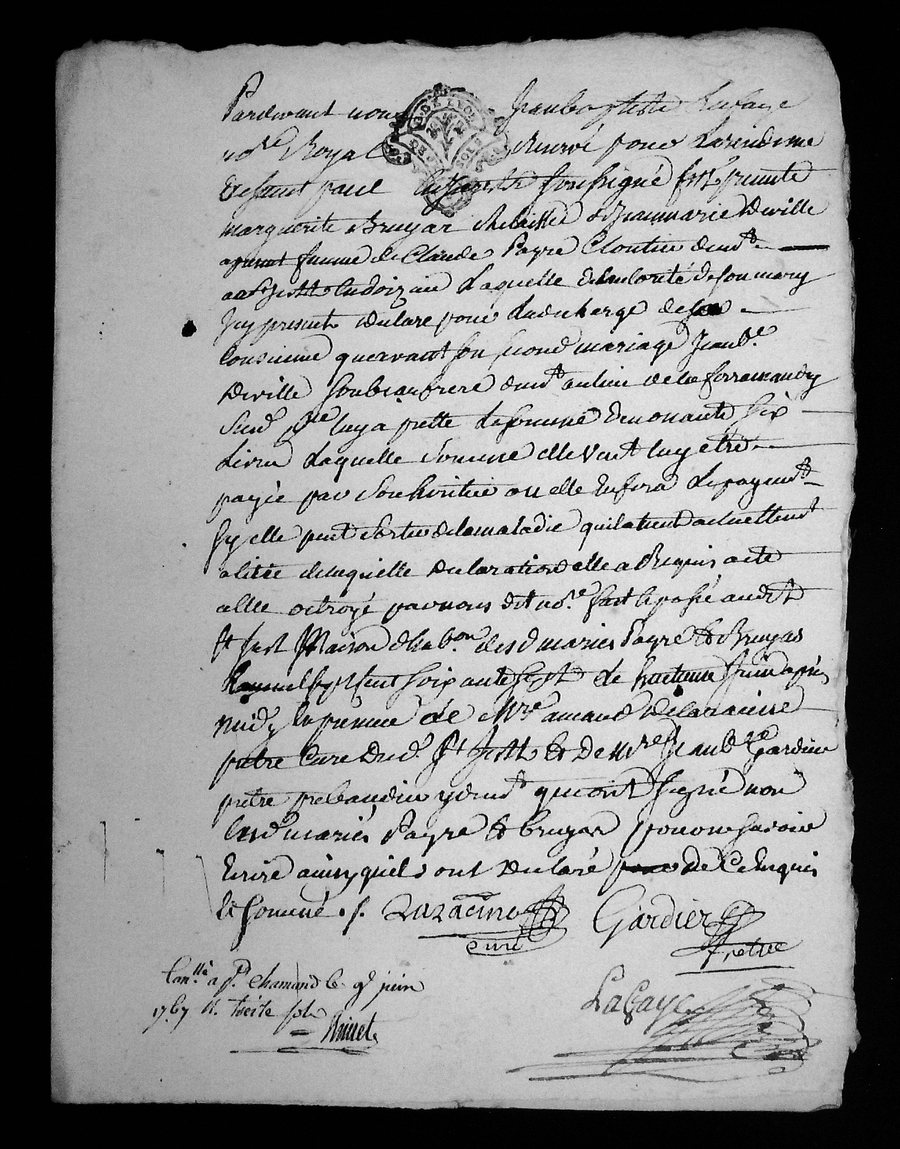 Pardevant nous Jean baptiste Lafaye
no.re Royal Reservé pour la residence
De saint paul en Jarest soussigné fut presente
marguerite Bruyas delaissée de Jean marie Deville
a present femme de Claude Payre Cloutier dem.t
a St Just en doizieu Laquelle de la volonté de son mary
Icy present declare pour la decharge de sa
Consience que avant son second mariage Jean b.te
Deville son beau frere dem.t au lieu de la
Susd. luy a pretté la somme de nonante six
Livres Laquelle somme elle veut luy etre
payée par son heritier ou elle en fera le payem.t
sy elle peut sortir de la maladie qui la tient actuellem.t
alitée de laquelle declaration elle a Requis acte
a elle octroyé par nous dit no.re fait et passé audit
St Just Maison d'hab.on desd maries Payre et Bruyas
L'an mil sept cent soixante sept le huitieme Juin apres
midy en presence de M.re amand De Lazacinie
pretre Curé Dud. St Just et De m.re Jean b.te Gardier
pretre prebandier y dem.t qui ont signé non
lesd mariés Payre et bruyas pour ne savoir
Ecrire ainsy quils ont declaré de Ce Enquis
et sommé ./.
Gardier
curé
Pretre
Con.llé a St. chamond le 9e juin
1767 R. treize sols
Lafaye
G. DE LYON